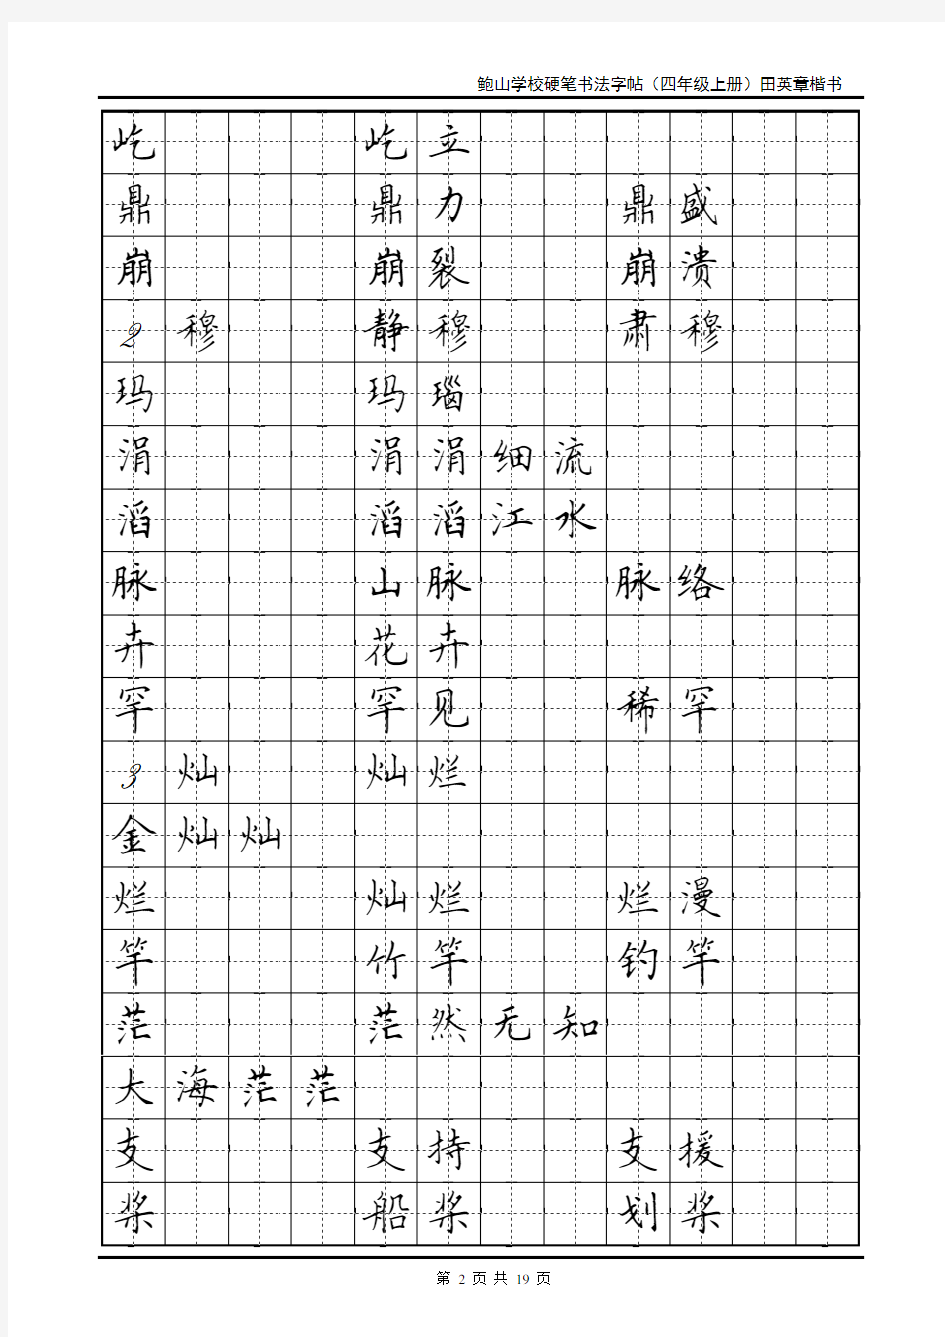 鲍山学校硬笔书法字帖（四年级上册）田英章楷书
屹 屹立
鼎 鼎力 鼎盛
崩 崩裂 崩溃
2 穆 静穆 肃穆
玛 玛瑙
涓 涓涓细流
滔 滔滔江水
脉 山脉 脉络
卉 花卉
罕 罕见 稀罕
3 灿 灿烂
金灿灿
烂 灿烂 烂漫
竿 竹竿 钓竿
茫 茫然无知
大海茫茫
支 支持 支援
桨 船桨 划桨
第 2 页 共 19 页